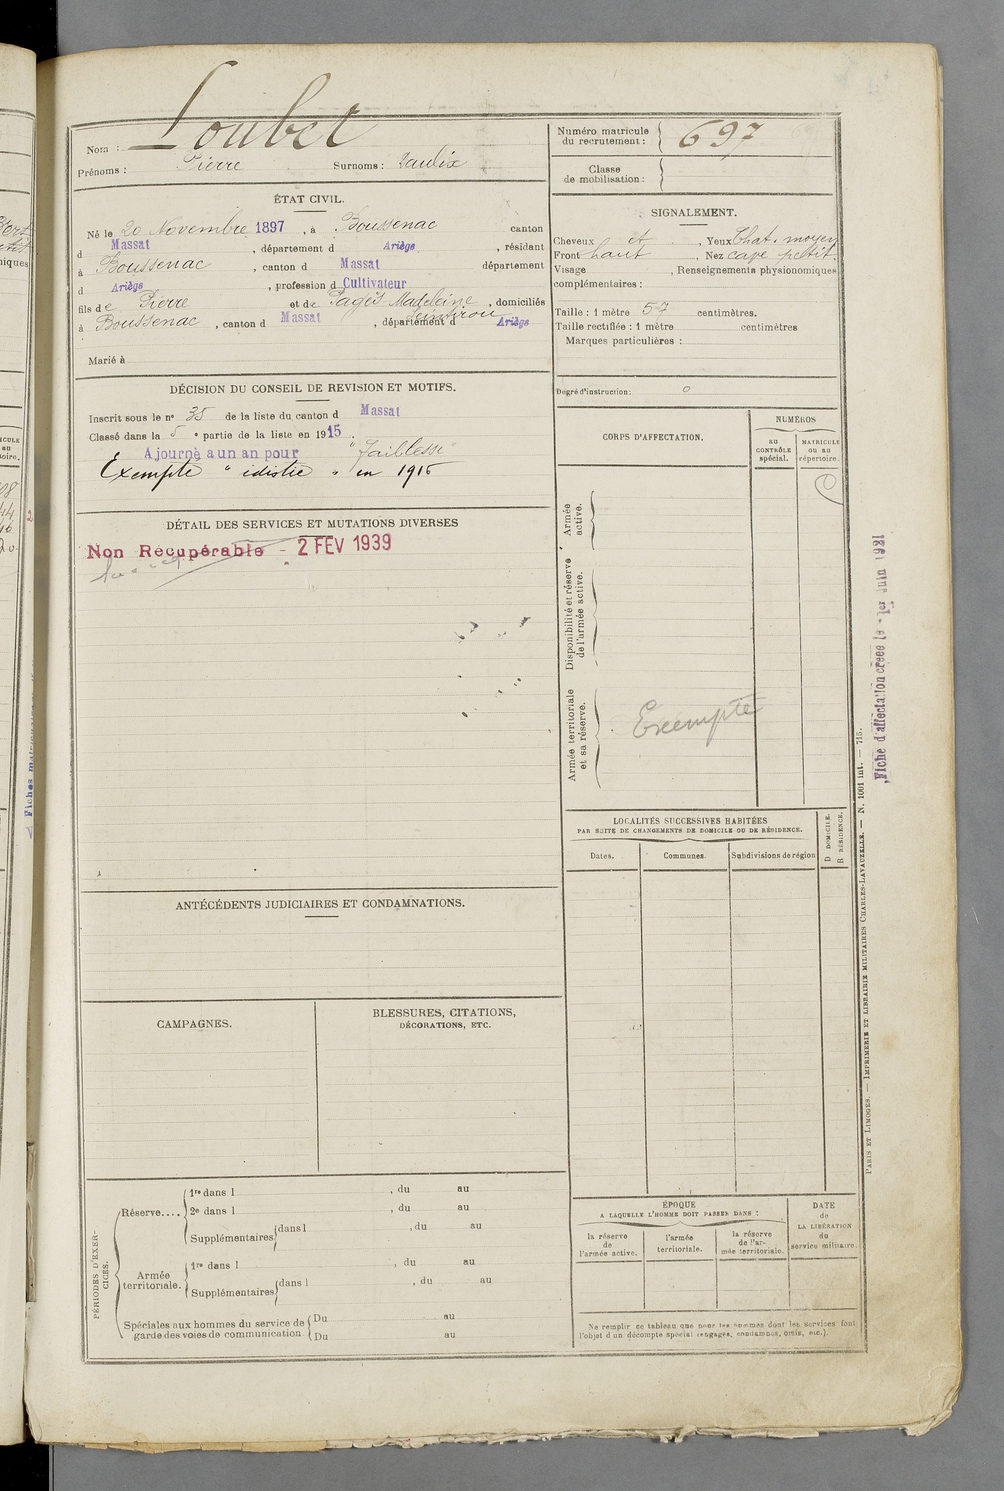 Loubet
Nom :
Prénoms : Pierre Surnoms :
Numéro matricule
du recrutement : 697
Classe
de mobilisation :
ÉTAT CIVIL.
Né le 20 Novembre 1897, à Boussenac canton
d Massat, département d Ariège, résidant
à Boussenac, canton d Massat département
d Ariège, profession d Cultivateur
fils de Pierre et de Pagès Madeleine, domiciliés
à Boussenac, canton d Massat, département d Ariège
Marié à
SIGNALEMENT.
Cheveux , Yeux Chat. moyen
Front haut, Nez cave petit
Visage , Renseignements physionomiques
complémentaires :
Taille : 1 mètre 57 centimètres.
Taille rectifiée : 1 mètre centimètres
Marques particulières :
Degré d'instruction : 0
DÉCISION DU CONSEIL DE REVISION ET MOTIFS.
Inscrit sous le n° 35 de la liste du canton d Massat
Classé dans la 5e partie de la liste en 1915.
Ajourné a un an pour "faiblesse"
Exempté " " en 1916
CORPS D'AFFECTATION.
NUMÉROS
AU
CONTRÔLE
spécial.
MATRICULE
OU AU
répertoire.
Armée
active.
Disponibilité et réserve
de l'armée active.
Armée territoriale
et sa réserve.
Exempté
DÉTAIL DES SERVICES ET MUTATIONS DIVERSES
Non Recupérable - 2 FEV 1939
LOCALITÉS SUCCESSIVES HABITÉES
PAR SUITE DE CHANGEMENTS DE DOMICILE OU DE RÉSIDENCE.
Dates.
Communes.
Subdivisions de région
D DOMICILE.
R RÉSIDENCE.
ANTÉCÉDENTS JUDICIAIRES ET CONDAMNATIONS.
CAMPAGNES.
BLESSURES, CITATIONS,
DÉCORATIONS, ETC.
PÉRIODES D'EXER-
CICES.
Réserve....
1re dans l , du au
2e dans l , du au
Supplémentaires dans l , du au
Armée
territoriale.
1re dans l , du au
Supplémentaires dans l , du au
Spéciales aux hommes du service de
garde des voies de communication
Du au
Du au
ÉPOQUE
A LAQUELLE L'HOMME DOIT PASSER DANS :
la réserve
de
l'armée active.
l'armée
territoriale.
la réserve
de l'ar-
mée territoriale.
DATE
de
LA LIBÉRATION
du
service militaire.
Ne remplir ce tableau que pour les hommes dont les services font
l'objet d'un décompte spécial (engagés, condamnés, omis, etc.).
PARIS ET LIMOGES. — IMPRIMERIE ET LIBRAIRIE MILITAIRES CHARLES-LAVAUZELLE. — N. 1001 int. — 715.
Fiche d'affectation créée le - 1er Juin 1921